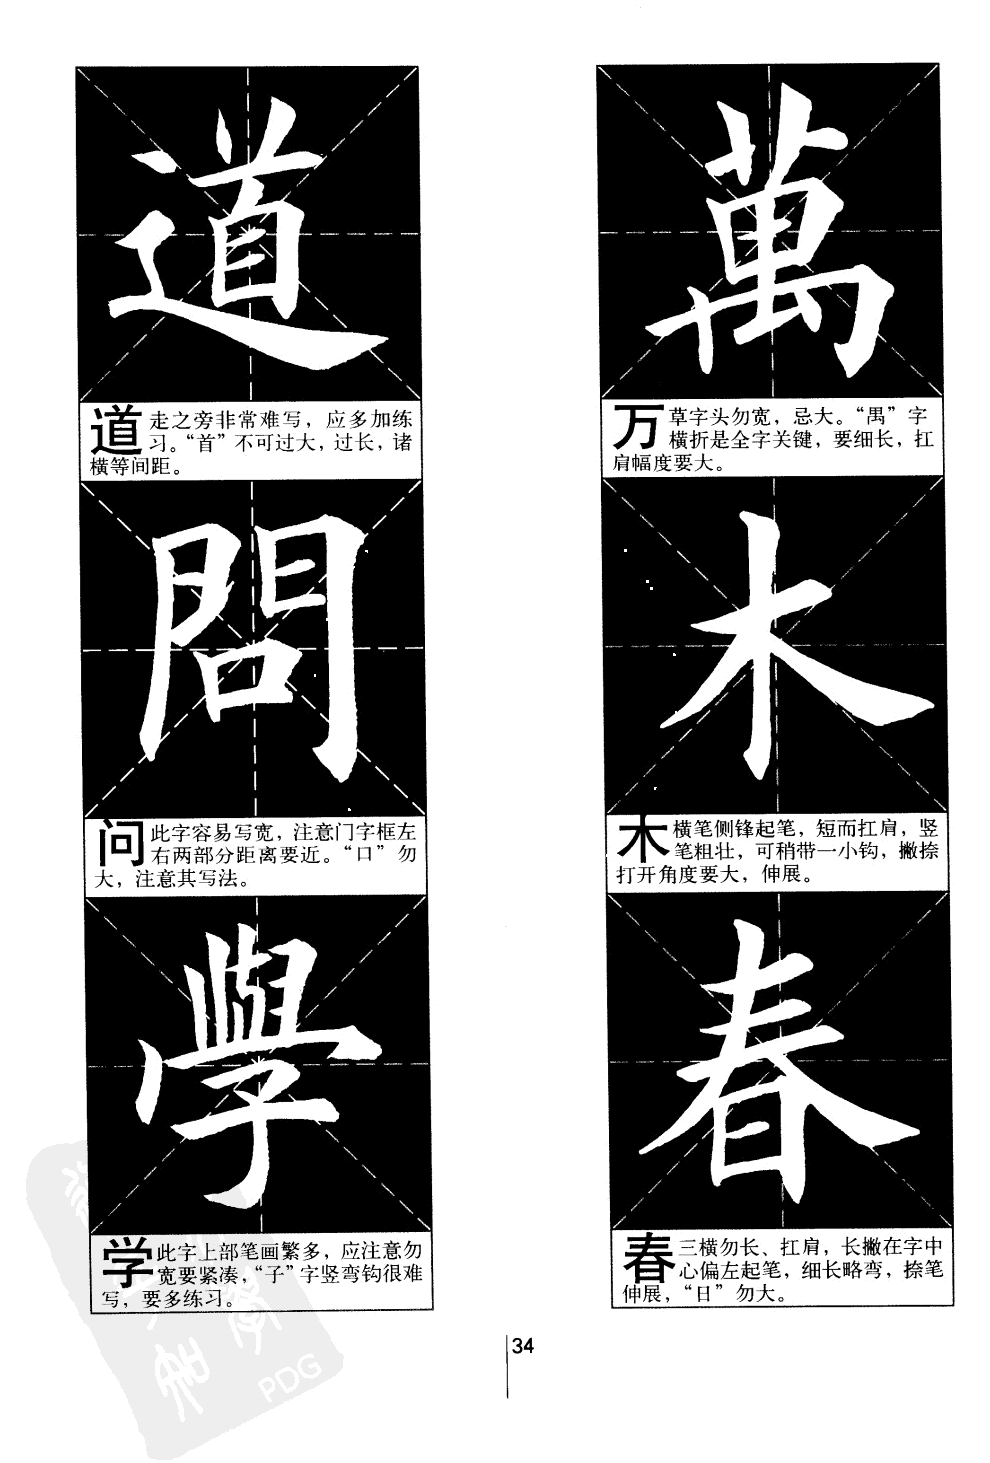 道
道 走之旁非常难写，应多加练
习。“首”不可过大，过长，诸
横等间距。
問
问 此字容易写宽，注意门字框左
右两部分距离要近。“口”勿
大，注意其写法。
學
学 此字上部笔画繁多，应注意勿
宽要紧凑，“子”字竖弯钩很难
写，要多练习。
萬
万 草字头勿宽，忌大。“禺”字
横折是全字关键，要细长，扛
肩幅度要大。
木
木 横笔侧锋起笔，短而扛肩，竖
笔粗壮，可稍带一小钩，撇捺
打开角度要大，伸展。
春
春 三横勿长、扛肩，长撇在字中
心偏左起笔，细长略弯，捺笔
伸展，“日”勿大。
34
PDG